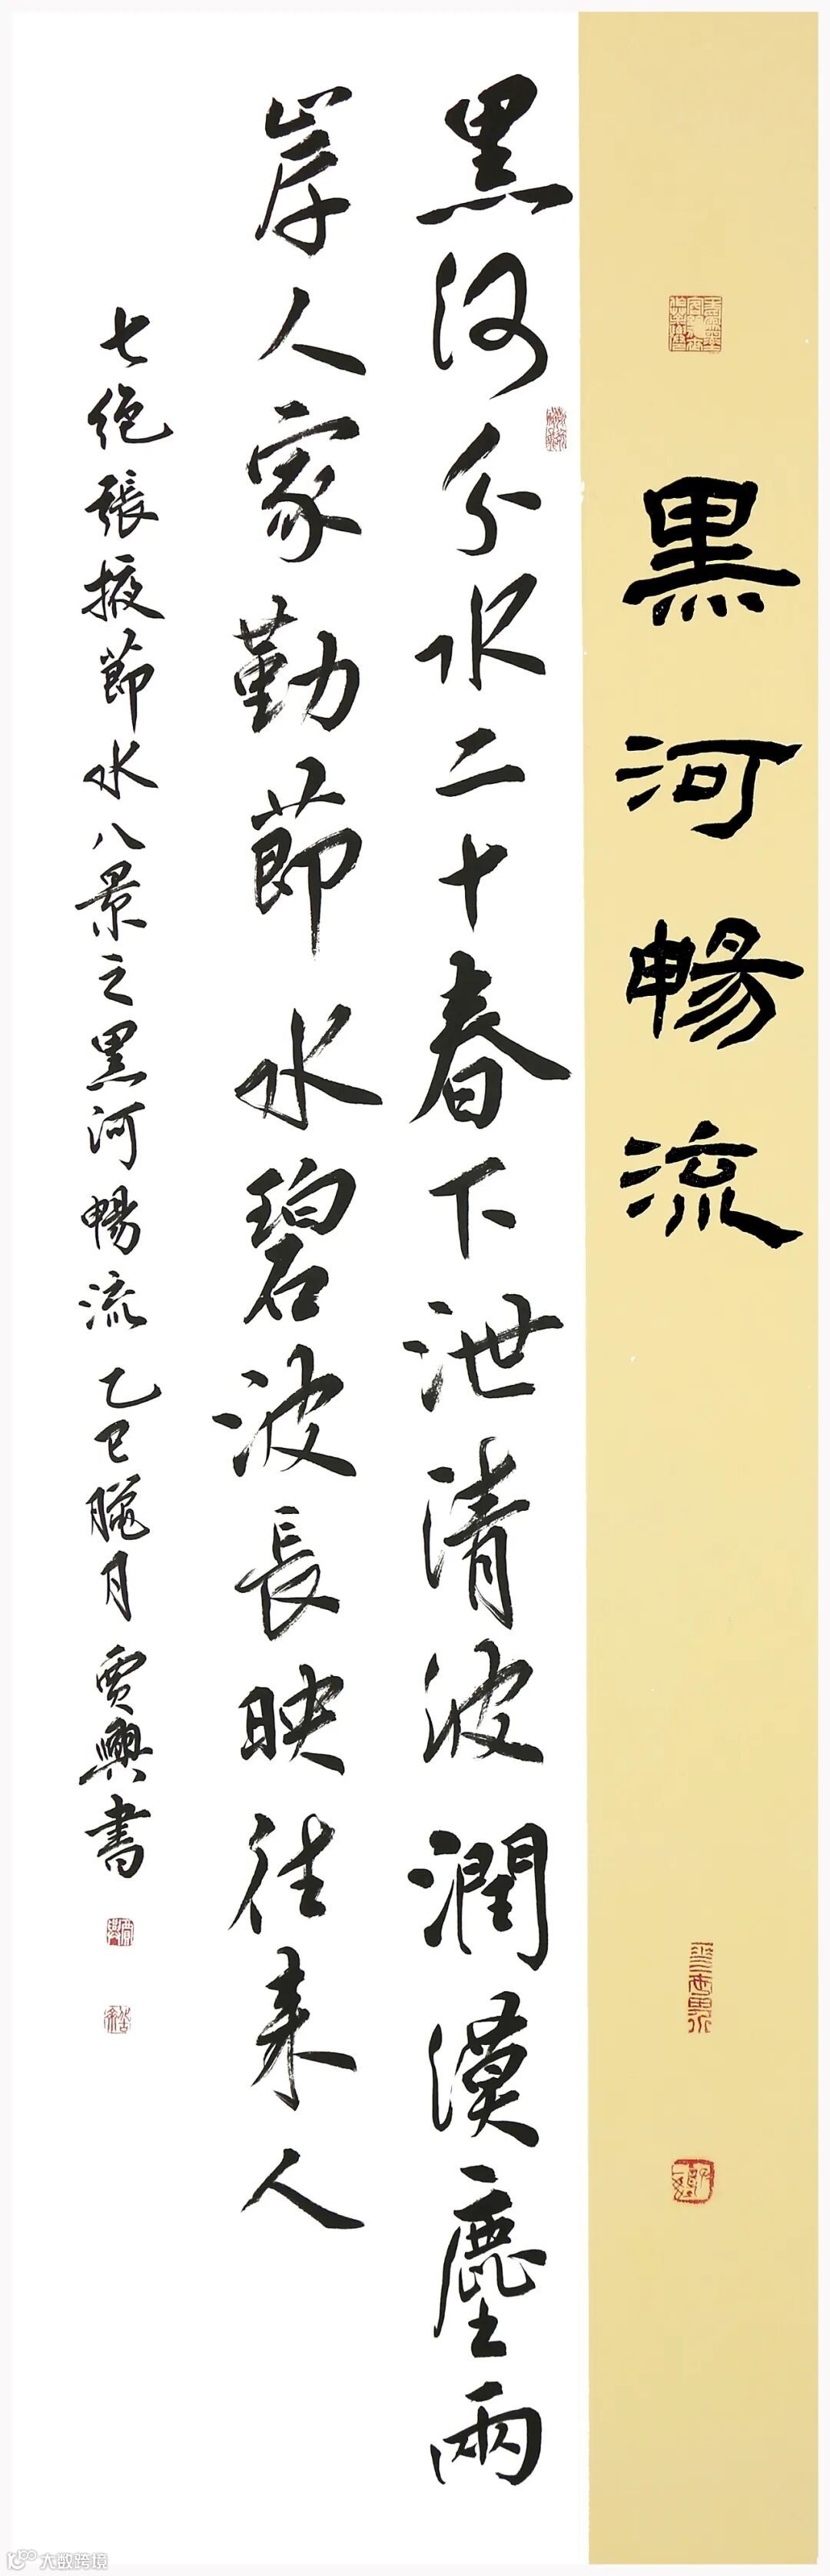 黑河暢流
黑河分水二十春下泄清波潤漠塵兩
岸人家勤節水碧波長映往來人
七绝張掖節水八景之黑河暢流 乙巳臘月 賈興書
大数跨境